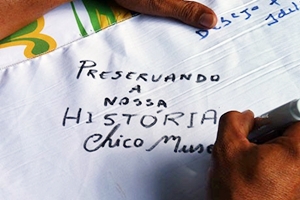 Desejo
PRESERVANDO
A
NOSSA
HISTÓRIA
Chico Muse